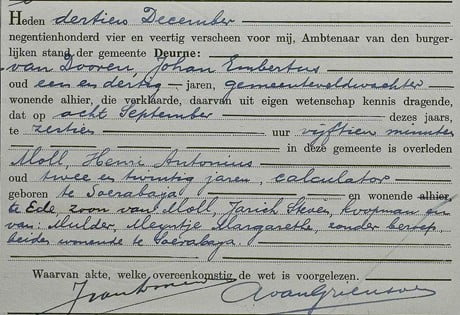 Heden dertien December
negentienhonderd vier en veertig verscheen voor mij, Ambtenaar van den burger-
lijken stand der gemeente Deurne:
van Dooren, Johan Embertus
oud een en dertig jaren, gemeenteveldwachter
wonende alhier, die verklaarde, daarvan uit eigen wetenschap kennis dragende,
dat op acht September dezes jaars,
te zertien uur vijftien minuten
in deze gemeente is overleden
Moll, Henri Antonius
oud twee en twintig jaren, calculator
geboren te Soerabaja en wonende alhier
te Ede, zoon van Moll, Jarich Steven, koopman en
van: Mulder, Meyntje Margaretha, zonder beroep,
beiden wonende te Soerabaja.
Waarvan akte, welke overeenkomstig de wet is voorgelezen.